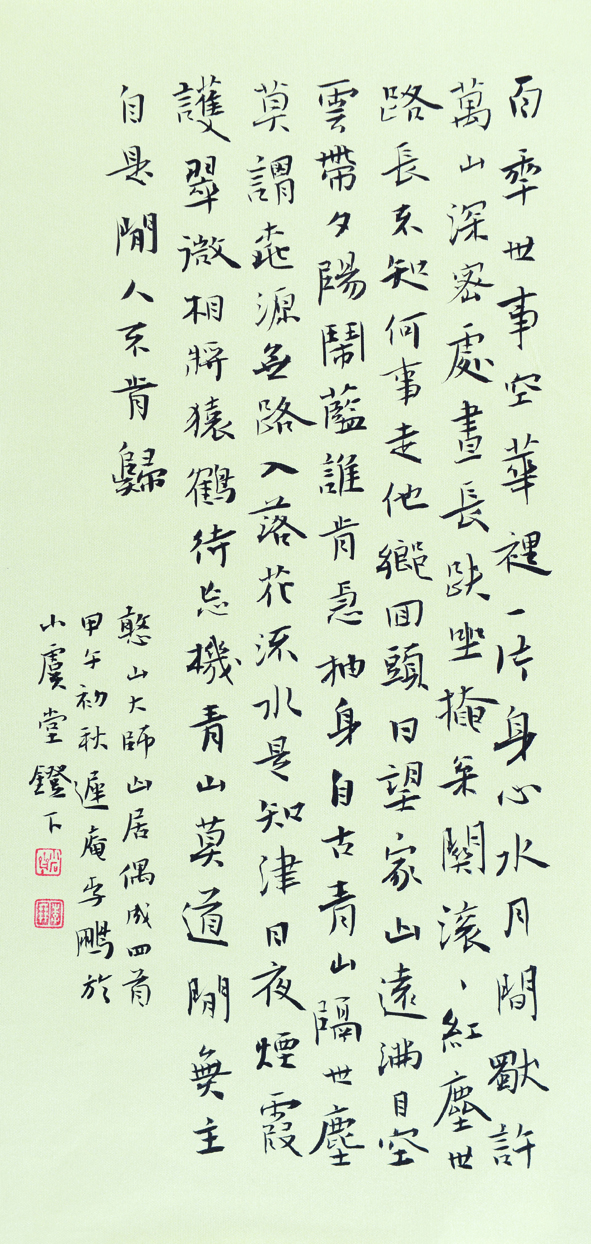 百年世事空華裡一片身心水月間獨許
萬山深密處晝長趺坐掩柴關滾〻紅塵世
路長不知何事走他鄉回頭日望家山遠滿目空
雲帶夕陽鬧藍誰肯急抽身自古青山隔世塵
莫謂桃源無路入落花流水是知津日夜煙霞
護翠微相將猿鶴待忘機青山莫道閒無主
自是閒人不肯歸
憨山大師山居偶成四首
甲午初秋遲庵李鵬於
小虞堂鐙下